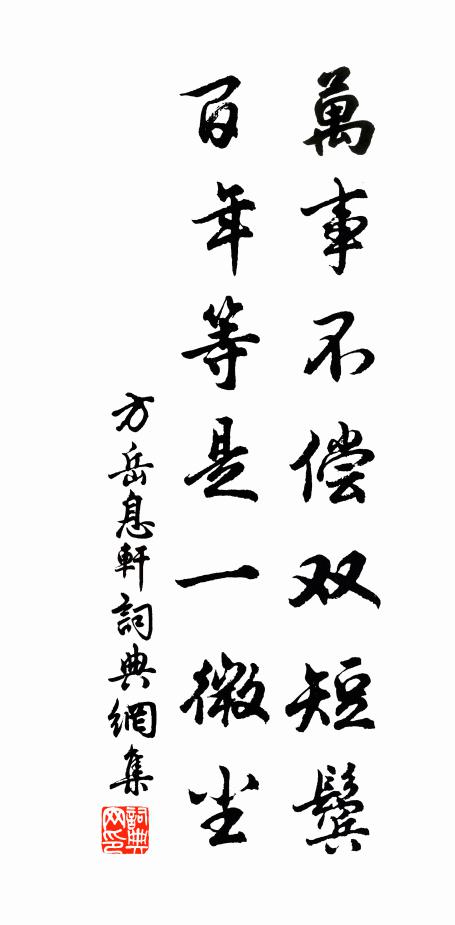 萬事不偿双短鬓
百年等是一微尘
方岳息軒詞典網集
詞典网印